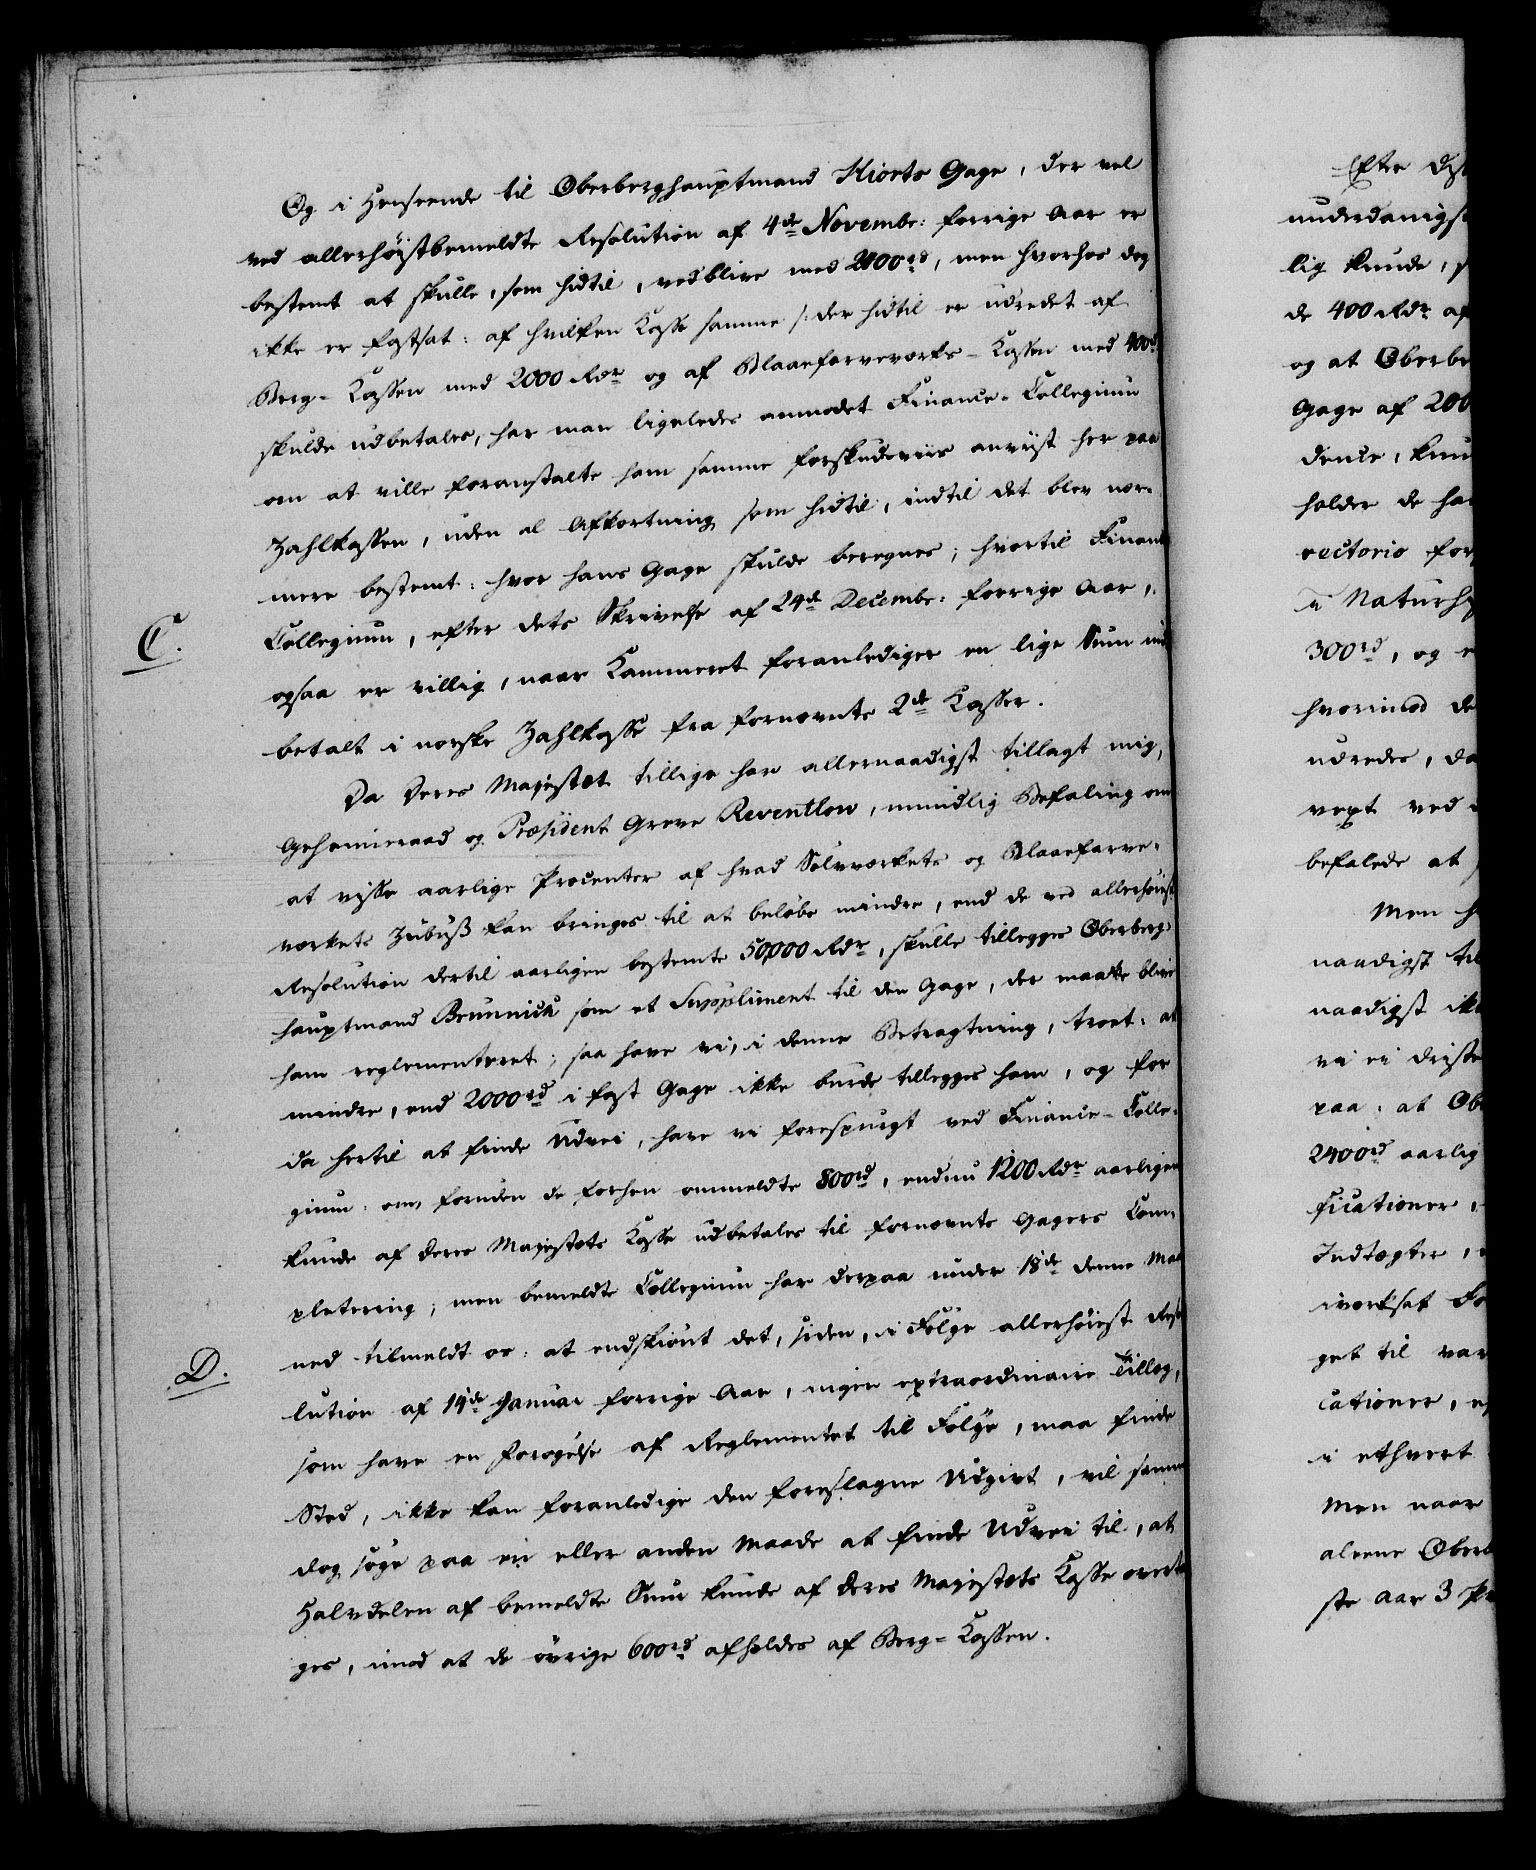 Og i Henseende til Oberberghauptmand Hiorts Gage, der vel
ved allerhöistbemeldte Resolution af 4de Novembr: forrige Aar er
bestemt at skulle, som hidtil, vedblive med 2400rd, men hvorhos dog
ikke er fastsat: af hvilken Kasse samme /: der hidtil er udredet af
Berg-Kassen med 2000 Rdr og af Blaafarveværks-Kassen med 400rd
skulde udbetales, har man ligeledes anmodet Finance-Collegium
om at ville foranstalte ham samme forskudsviis anviist her paa
Zahlkassen, uden al Afkortning som hidtil, indtil det blev nær-
mere bestemt: hvor hans Gage skulde beregnes; hvortil Finance
C.
Collegium, efter dets Skrivelse af 24de Decembr: forrige Aar,
ogsaa er villig, naar Kammeret foranlediger en lige Sum ind
betalt i norske Zahlkasse fra fornævnte 2de Kasser.
Da Deres Majestæt tillige har allernaadigst tillagt mig,
Geheimeraad og Præsident Greve Reventlow, mundlig Befaling om
at visse aarlige Procenter af hvad Sølvværkets og Blaafarve-
værkets Zubuß kan bringes til at beløbe mindre, end de ved allerhøiest
Resolution dertil aarligen bestemte 50,000 Rdr, skulle tillegges Oberberg-
hauptmand Brünnich som et Suppliment til den Gage, der maatte blive
ham reglementeret; saa have vi, i denne Betragtning, troet: at
mindre, end 2000rd i fast Gage ikke burde tillegges ham, og for
da hertil at finde Udvei, have vi forespurgt ved Finance-Colle-
gium: om, foruden de forhen ommeldte 800rd, endnu 1200 Rdr aarligen
kunde af Deres Majestæts Kasse udbetales til fornævnte Gagers Com-
pletering; men bemeldte Collegium har derpaa under 18de denne Maa
D.
ned tilmeldt os: at endskiönt det, siden, i Følge allerhøiest Reso
lution af 14de Januar forrige Aar, ingen extraordinaire Tillæg,
som have en Forøgelse af Reglementet til Følge, maa finde
Sted, ikke kan foranledige den foreslagne Udgivt, vil samme
dog søge paa en eller anden Maade at finde Udvei til, at
Halvdelen af bemeldte Sum kunde af Deres Majestæts Kasse overta
ges, imod at de övrige 600rd afholdes af Berg-Kassen.
underdanigst
lig kunde,
de 400 Rdr af
og at Oberbe
Gage af 200
dence, kun
holder de ha
rectorio for
i Naturh
300rd, og
hvorimod de
udredes, da
vext ved
befalede at
Men h
naadigst til
naadigst ik
vi ei driste
paa: at Ob
2400rd aarlig
fications,
Indtægter,
iværksat Fo
get til va
cationer,
i ethvert
Men naar
aleene Oberb
ste Aar 3 P